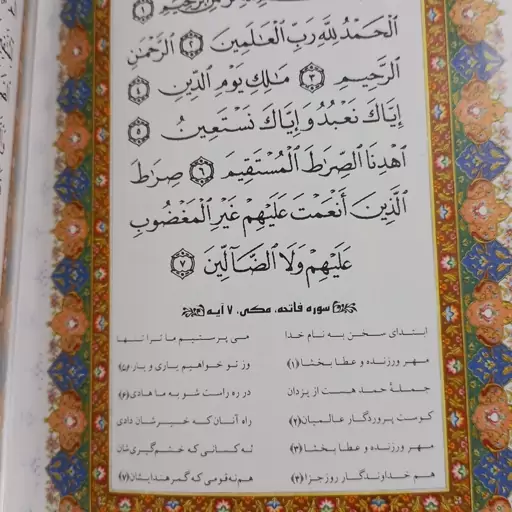 ٱلْحَمْدُ لِلَّهِ رَبِّ ٱلْعَٰلَمِينَ ﴿٢﴾ ٱلرَّحْمَٰنِ
ٱلرَّحِيمِ ﴿٣﴾ مَٰلِكِ يَوْمِ ٱلدِّينِ ﴿٤﴾
إِيَّاكَ نَعْبُدُ وَإِيَّاكَ نَسْتَعِينُ ﴿٥﴾
ٱهْدِنَا ٱلصِّرَٰطَ ٱلْمُسْتَقِيمَ ﴿٦﴾ صِرَٰطَ
ٱلَّذِينَ أَنْعَمْتَ عَلَيْهِمْ غَيْرِ ٱلْمَغْضُوبِ
عَلَيْهِمْ وَلَا ٱلضَّآلِّينَ ﴿٧﴾
سوره فاتحه، مکی، ۷ آیه
ابتدای سخن به نام خدا
مهر ورزنده و عطا بخشا (۱)
جملهٔ حمد هست از یزدان
کوست پروردگار عالمیان (۲)
مهر ورزنده و عطا بخشا (۳)
هم خداوندگار روز جزا (۴)
می پرستیم ما ترا تنها
وز تو خواهیم یاری و یارا (۵)
در ره راست شو به ما هادی (۶)
راه آنان که خیرشان دادی
نه کسانی که خشم گیری‌شان
هم نه قومی که گمرهند ایشان (۷)